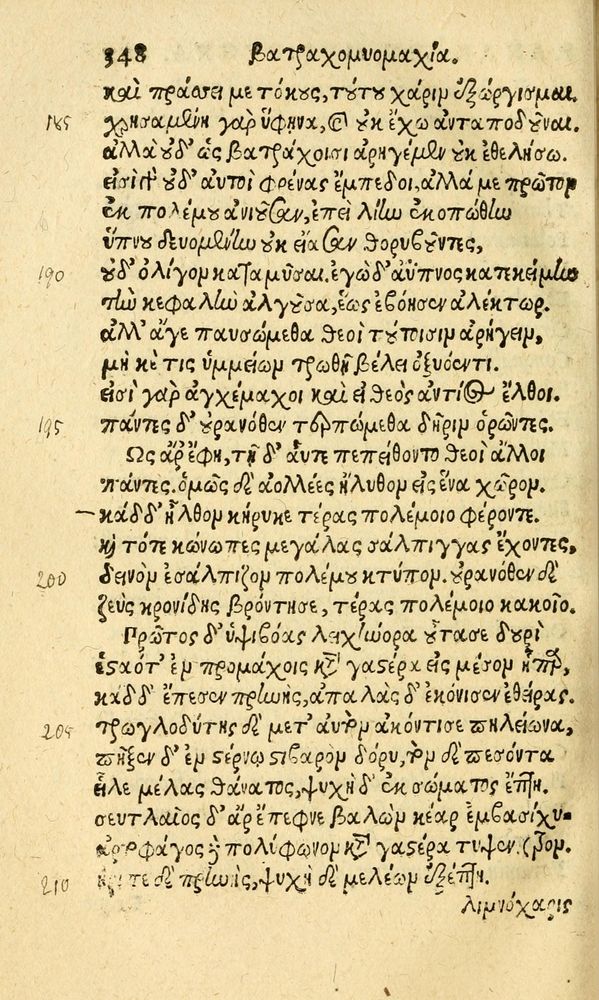 348 βατραχομυομαχία.
καὶ πράσσει με τόκους, τούτου χάριμ ἐξώργισμαι.
185 χρησαμένη γαρ ὕφηνα, καὶ ουκ ἔχω ανταποδοῦναι.
αλλὰ ουδ' ὣς βατράχοισι αρηγέμεν ουκ εθελήσω.
εισὶ γαρ ουδ' αυτοὶ φρένας ἔμπεδοι, αλλά με πρῶτομ
εκ πολέμου ανιοῦσαν, επεὶ λίην εκοπώθην
ὕπνου δευομένην ουκ είασαν θορυβοῦντες,
190 ουδ' ολίγομ καταμῦσαι. εγὼ δ' αὔπνος κατεκείμην
τὴν κεφαλὴν αλγοῦσα, ἕως εβόησεν αλέκτωρ.
αλλ' ἄγε παυσώμεθα θεοὶ τούτοισιμ αρήγειμ,
μή κέ τις ὑμμείωμ τρωθῇ βέλει οξυόεντι.
εισὶ γαρ αγχέμαχοι καὶ ει θεὸς αντίος ἔλθοι.
195 πάντες δ' ουρανόθεν τερπώμεθα δῆριμ ὁρῶντες.
Ως αρ' έφη, τῇ δ' αὖτε πεπείθοντο θεοὶ ἄλλοι
πάντες. ὁμῶς δὲ αολλέες ήλυθομ εις ἕνα χῶρομ.
κάδδ' ἦλθομ κήρυκε τέρας πολέμοιο φέροντε.
καὶ τότε κώνωπες μεγάλας σάλπιγγας έχοντες,
200 δεινὸμ εσάλπιζομ πολέμου κτύπομ. ουρανόθεν δὲ
ζεὺς κρονίδης βρόντησε, τέρας πολέμοιο κακοῖο.
Πρῶτος δ' ὑψιβόας λειχήνορα οὔτασε δουρὶ
ἑσταότ' ἐμ προμάχοις κατὰ γαστέρα εις μέσομ ἧπαρ,
κὰδ δ' έπεσεν πρηνής, απαλὰς δ' εκόνισεν εθείρας.
205 τρωγλοδύτης δὲ μετ' αυτὸμ ακόντισε πηλείωνα,
πῆξεν δ' ἐμ στέρνῳ στιβαρὸμ δόρυ, τὸμ δὲ πεσόντα
εἷλε μέλας θάνατος, ψυχὴ δ' εκ σώματος έπτη.
σευτλαῖος δ' ἄρ' έπεφνε βαλὼμ κέαρ εμβασίχυ-
αρτοφάγος δὲ πολύφωνομ κατὰ γαστέρα τυψεν. (τρομ.
210 ήριπε δὲ πρηνής, ψυχὴ δὲ μελέωμ εξέπτη.
λιμνόχαρις